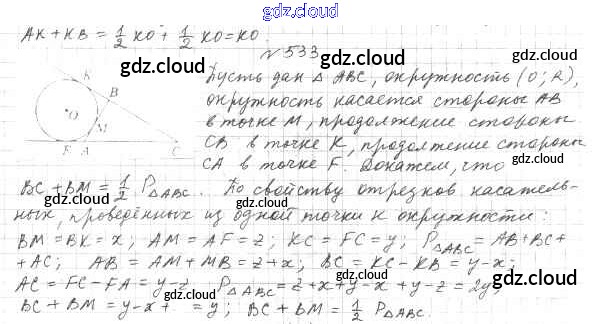 gdz.cloud
AK + KB = 1/2 KO + 1/2 KO = KO.
gdz.cloud
№ 533
gdz.cloud
Пусть дан △ ABC, окружность (O; R),
окружность касается стороны AB
в точке M, продолжение стороны
CB в точке K, продолжение стороны
CA в точке F. Докажем, что
K
B
O
M
F A C
gdz.cloud
BC + BM = 1/2 P△ABC. По свойству отрезков касатель-
ных, проведённых из одной точки к окружности:
BM = BK = x; AM = AF = z; KC = FC = y; P△ABC = AB + BC +
+ AC; AB = AM + MB = z + x; BC = KC - KB = y - x;
AC = FC - FA = y - z; P△ABC = z + x + y - x + y - z = 2y;
BC + BM = y - x + = y; BC + BM = 1/2 P△ABC.
gdz.cloud